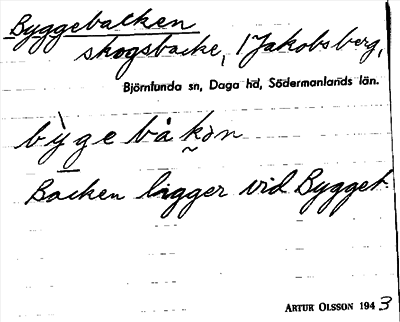 Byggebacken
skogsbacke, /Jakobsberg,
Björnlunda sn, Daga hd, Södermanlands län.
bỳgebàkən
Backen ligger vid Bygget.
ARTUR OLSSON 1943